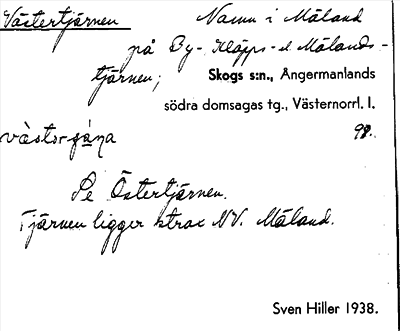 Västertjärnen Namn i Måland
på By-, Kläpps- el. Målands-
tjärnen;
Skogs s:n., Ångermanlands
södra domsagas tg., Västernorrl. l.
Se Östertjärnen.
Tjärnen ligger strax NV. Måland.
Sven Hiller 1938.